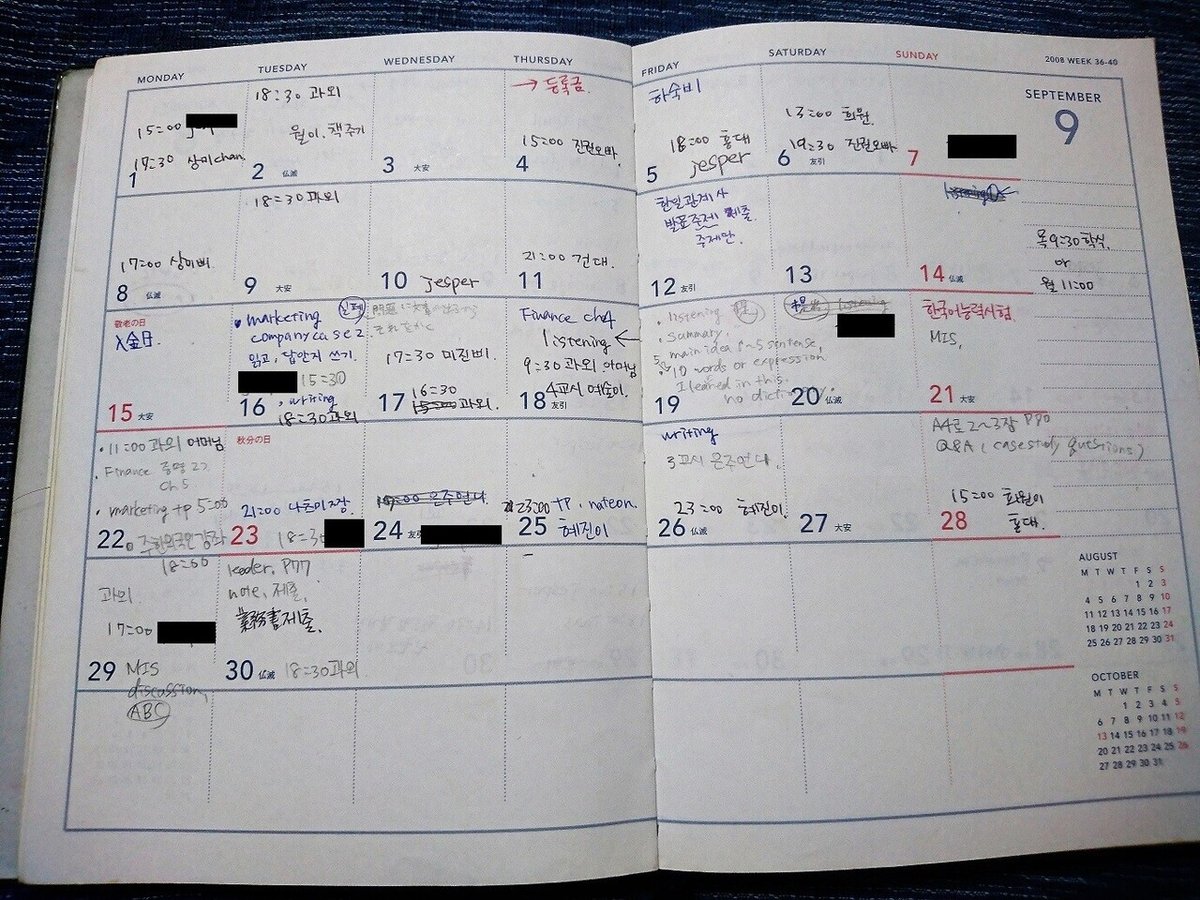 MONDAY
TUESDAY
WEDNESDAY
THURSDAY
FRIDAY
SATURDAY
SUNDAY
2008 WEEK 36-40
SEPTEMBER
9
15:00
17:30 상미chan
1
18:30 과외
월이, 책주기
2 仏滅
3 大安
→ 등록금.
15:00 진권오빠
4
하숙비
18:00 홍대
jesper
5
13:00 희원
19:30 진권오빠
6 友引
7
17:00 상미삐.
8 仏滅
18:30 과외
9 大安
10 jesper
21:00 건대.
11
한일관계사
발표주제 제출.
주제만.
12 友引
13
14 仏滅
목 9:30 학식.
or
월 11:00
敬老の日
入金日.
15 大安
• marketing
company case 2
읽고, 답안지 쓰기
15:30
• writing
16 仏滅 18:30 과외
17:30 미진삐.
16:30
17 15:00 과외.
Finance ch4
listening ←
9:30 과외 어머님
4교시 예솔이.
18 友引
• listening
• summary.
main idea 5~5 sentense,
• 10 words or expression
I learned in this.
no dictionary.
19
20 仏滅
한국어능력시험
MIS,
21 大安
• 11:00 과외 어머님
• Finance 증명 2>
ch 5
• marketing tp 5:00
22 주한외국인강좌
18:00
秋分の日
21:00 나츠미즈장.
23 18:30
19:00 은주언니
24 友引
23:00 tp, nateon.
25 혜진이
writing
3교시 은주언니.
23:00 혜진이.
26 仏滅
27 大安
A4로 2~3장 PPO
Q&A (case study questions)
15:00 희원이
28 홍대.
과외
17:00
29 MIS
discussion,
ABC
reader, P77
note, 제출,
業務書제출.
30 仏滅 18:30 과외
AUGUST
M T W T F S S
1 2 3
4 5 6 7 8 9 10
11 12 13 14 15 16 17
18 19 20 21 22 23 24
25 26 27 28 29 30 31
OCTOBER
M T W T F S S
1 2 3 4 5
6 7 8 9 10 11 12
13 14 15 16 17 18 19
20 21 22 23 24 25 26
27 28 29 30 31